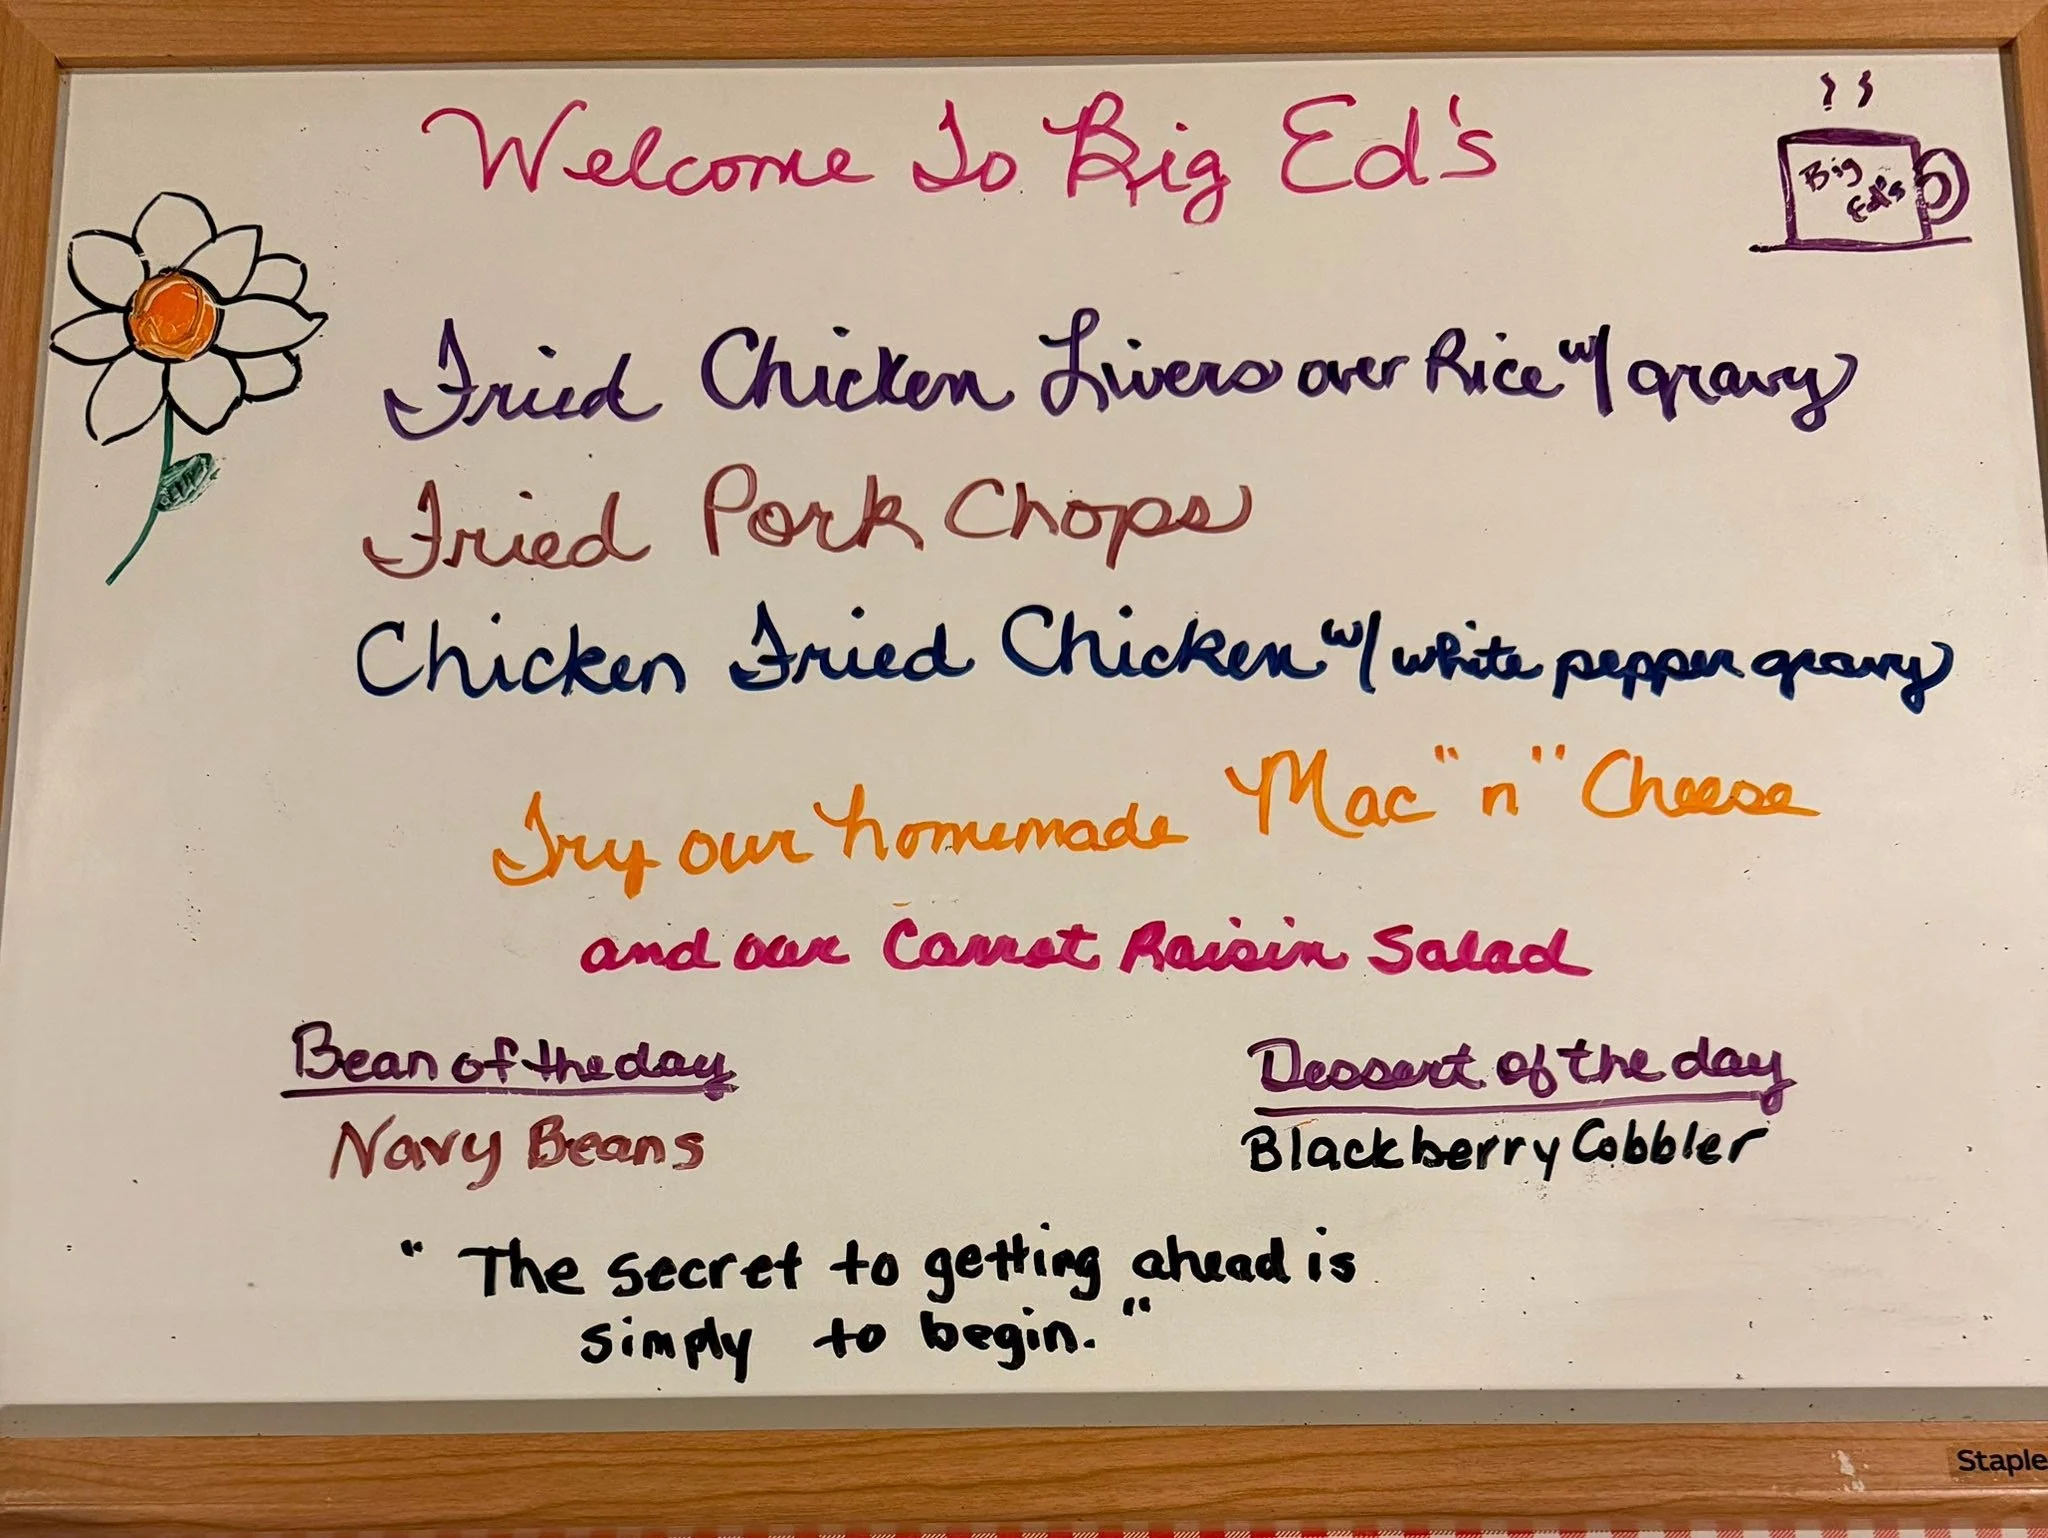 Welcome To Big Ed's
Big
Ed's
Fried Chicken Livers over Rice w/ gravy
Fried Pork Chops
Chicken Fried Chicken w/ white pepper gravy
Try our homemade Mac "n" Cheese
and our Carrot Raisin Salad
Bean of the day
Navy Beans
Dessert of the day
Blackberry Cobbler
" The secret to getting ahead is
simply to begin."
Staple